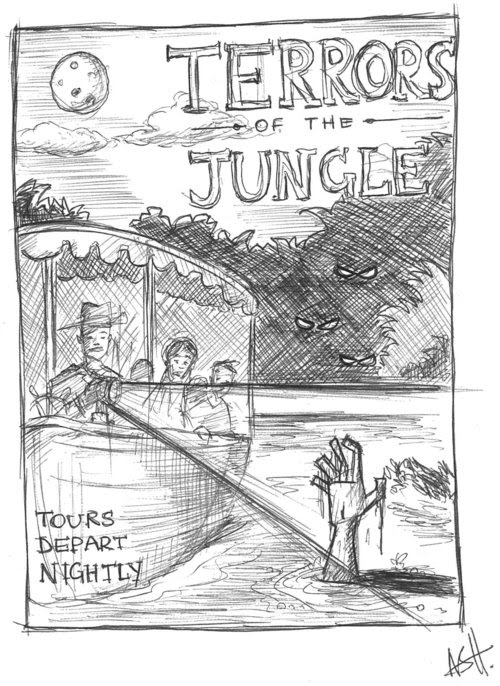 TERRORS
OF THE
JUNGLE
TOURS
DEPART
NIGHTLY
ASH.